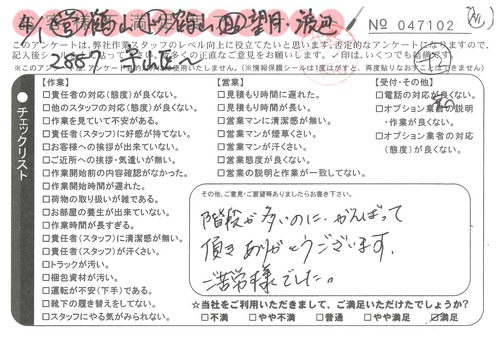 No 047102
このアンケートは、弊社作業スタッフのレベル向上に役立てたいと思います。否定的なアンケートになりますので、
【作業】
□責任者の対応(態度)が良くない。
□他のスタッフの対応(態度)が良くない。
□作業を見ていて不安がある。
□責任者(スタッフ)に好感が持てない。
□お客様への挨拶が出来ていない。
□ご近所への挨拶・気遣いが無い。
□作業開始前の内容確認がなかった。
□作業開始時間が遅れた。
□荷物の取り扱いが雑である。
□お部屋の養生が出来ていない。
□作業時間が長すぎる。
□責任者(スタッフ)に清潔感が無い。
□責任者(スタッフ)が汗くさい。
□トラックが汚い。
□梱包資材が汚い。
□運転が不安(下手)である。
□靴下の履き替えをしてない。
□スタッフにやる気がみられない。
【営業】
□見積もり時間に遅れた。
□見積もり時間が長い。
□営業マンに清潔感が無い。
□営業マンが煙草くさい。
□営業マンが汗くさい。
□営業態度が良くない。
□営業の説明と作業が一致してない。
【受付・その他】
□電話の対応が良くない。
□オプション業者の説明
・作業が良くない。
□オプション業者の対応
(態度)が良くない。
チェックリスト
その他、ご意見・ご要望等ありましたらお書き下さい。
階段が多いのに、がんばって
頂きありがとうございます。
ご苦労様でした。
☆当社をご利用いただきまして、ご満足いただけたでしょうか?
□不満 □やや不満 □普通 □やや満足 ☑満足